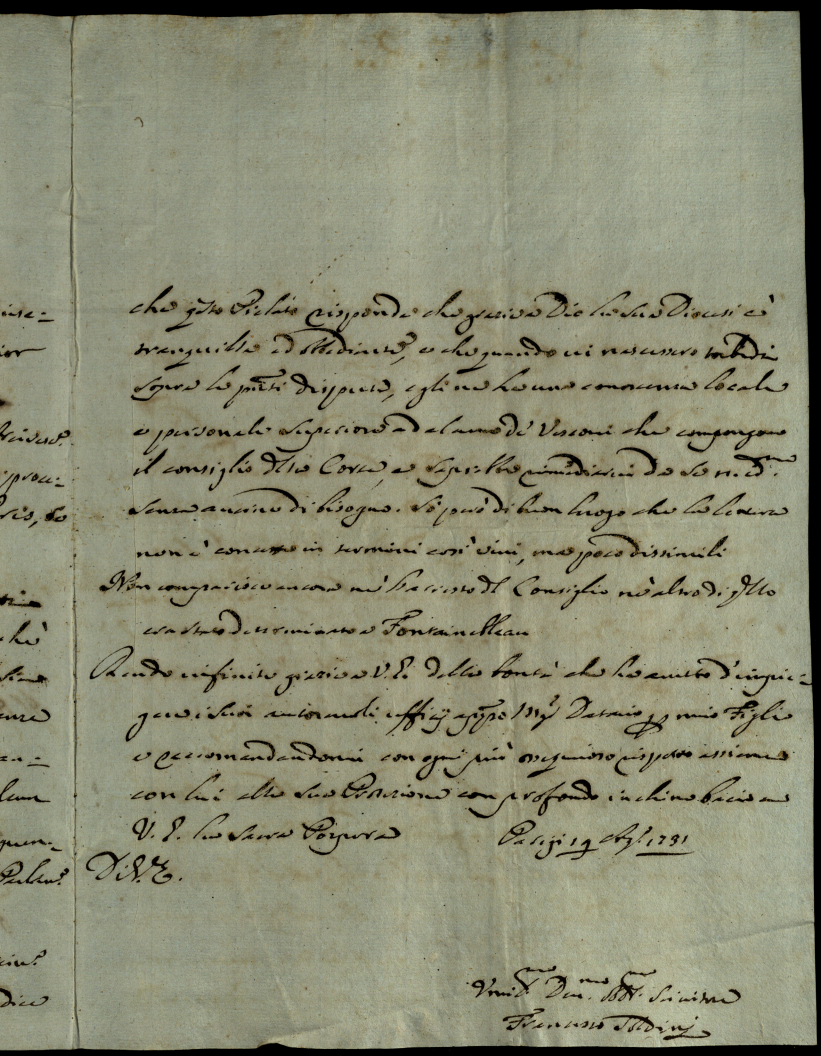 che q.sto Prelato risponde che grazie a Dio la sua Diocesi è
tranquilla ed obediente, e che quando vi nascessero torbidi
sopra le p.nti dispute, egli ne ha una conoscenza locale
e personale superiore ad alcuno de' Vescovi che compongono
il consiglio della Corte, e saprebbe rimediarvi da se med.mo
senza averne di bisogno. Sò però di buon luogo che la lettera
non è concetta in termini così vivi, ma poco dissimili
Non comparisce ancora nè l'arresto del Consiglio nè altro di q.llo
era stato determinato a Fontainebleau
Rendo infinite grazie a V. E. della bontà che ha avuto d'impie=
gare i suoi autorevoli ufficj appo Msg.r Datario p mio Figlio
e raccomandandomi con ogni più ossequioso rispetto assieme
con lui alla sua Protezione con profondo inchino bacio a
V. E. la Sacra Porpora
Parigi 19 Ag.o 1731
Di V. E.
Umil.mo Dev.mo Obb.mo Servitore
Francesco